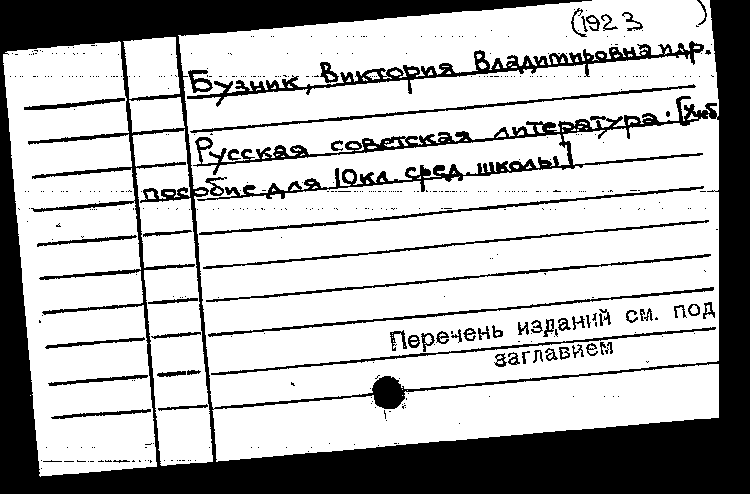 (1923 )
Бузник, Виктория Владимировна и др.
Русская советская литература. [Учеб.
пособие для 10 кл. сред. школы].
Перечень изданий см. под
заглавием